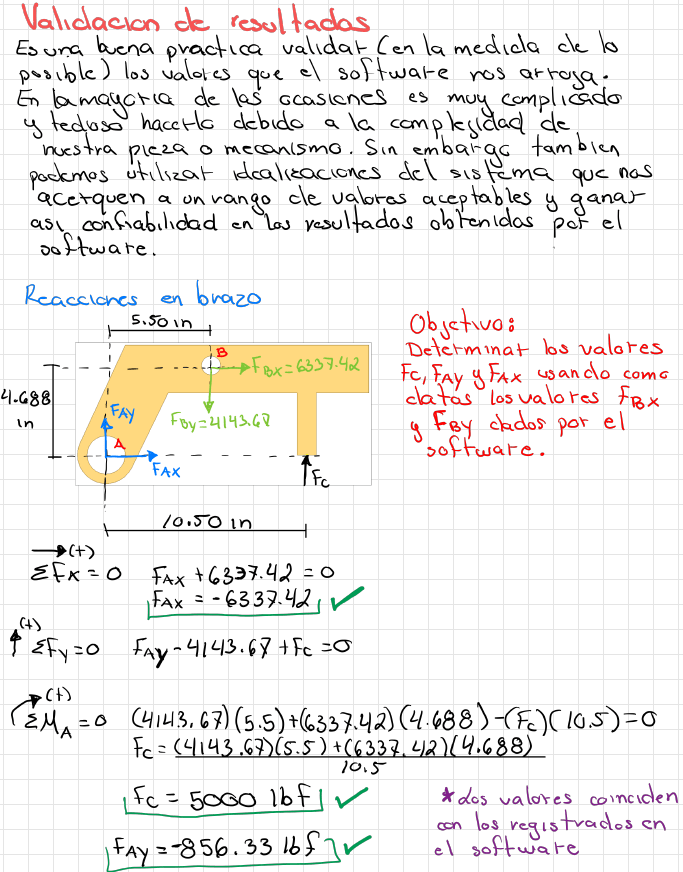 Validacion de resultados
Es una buena practica validar (en la medida de lo
posible) los valores que el software nos arroja.
En la mayoria de las ocasiones es muy complicado
y tedioso hacerlo debido a la complejidad de
nuestra pieza o mecanismo. Sin embargo tambien
podemos utilizar idealizaciones del sistema que nos
acerquen a un rango de valores aceptables y ganar
asi confiabilidad en los resultados obtenidos por el
software.
Reacciones en brazo
5.50 in
B
FBx = 6337.42
4.688
in
FAy
FBy = 4143.67
A
FAx
Fc
10.50 in
Objetivo:
Determinar los valores
Fc, FAy y FAx usando como
datos los valores FBx
y FBy dados por el
software.
→(+)
ΣFx = 0 FAx + 6337.42 = 0
FAx = -6337.42 ✓
(+)
↑ ΣFy = 0 FAy - 4143.67 + Fc = 0
(+)
ΣMA = 0 (4143.67)(5.5)+(6337.42)(4.688)-(Fc)(10.5)=0
Fc = (4143.67)(5.5)+(6337.42)(4.688)
10.5
Fc = 5000 lbf ✓
FAy = -856.33 lbf ✓
*Los valores coinciden
con los registrados en
el software